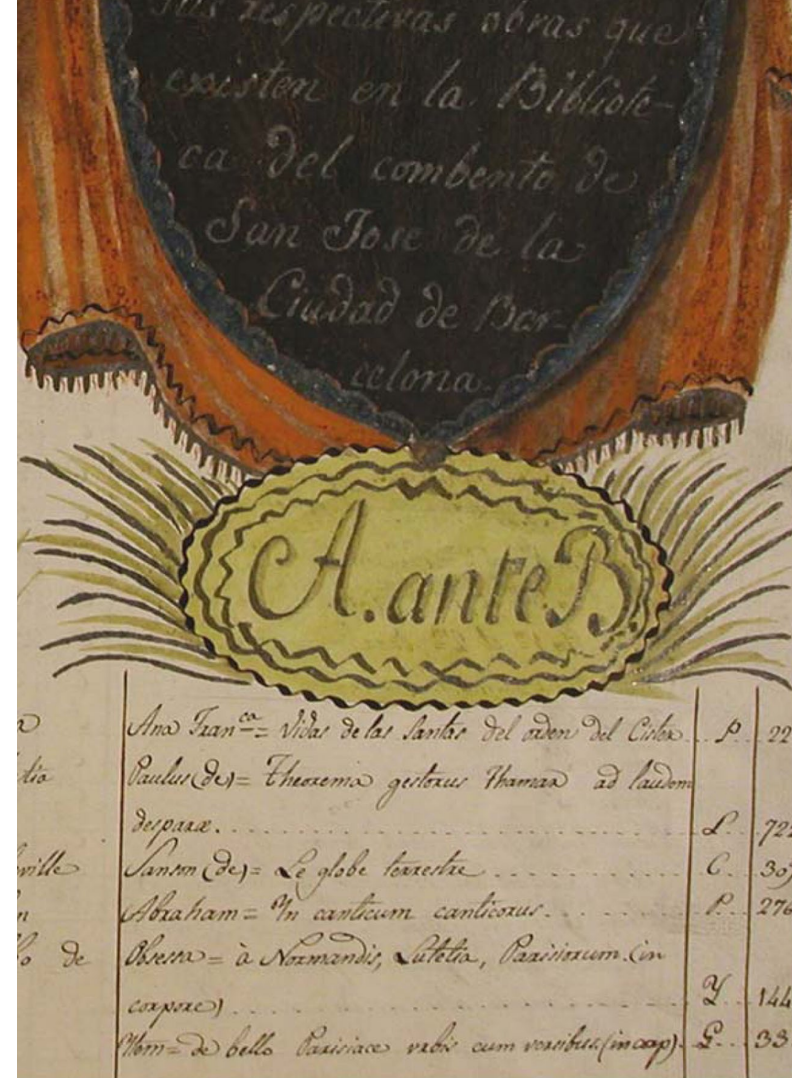 sus respectivas obras que
existen en la Bibliote-
ca del combento de
San Jose de la
Ciudad de Bar-
celona.
A. ante B.
Ana Fran.ca = Vidas de las Santas del orden del Cister P. 22
tia Paulus (de) = Theorema gestorus Thamar ad laudem
deiparæ. L. 722
ville Sanson (de) = Le globe terrestre C. 305
n Abraham = In canticum canticorus. P. 276
lo de Obsessa = à Normandis, Lutetia, Parisiorum (in
corpore) Y 144
Idem = de bello Parisiace urbis cum versibus (in corp) G. 33